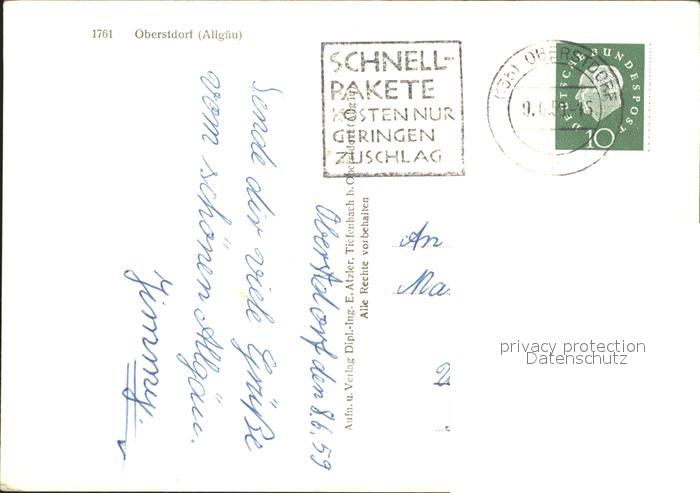 1761 Oberstdorf (Allgäu)
SCHNELL-
PAKETE
KOSTEN NUR
GERINGEN
ZUSCHLAG
OBERSTDORF
DEUTSCHE BUNDESPOST
10
Oberstdorf den 8.6.59
Sende dir viele Grüße
vom schönen Allgäu.
Jimmy.
Aufn. u. Verlag Dipl.-Ing. E. Atzler, Tiefenbach b. Oberstdorf (Allgäu)
Alle Rechte vorbehalten
An
Ma
privacy protection
Datenschutz